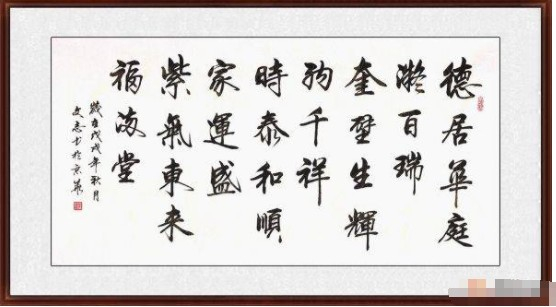 德居華庭
凝百瑞
奎壁生輝
千祥
時泰和順
家運盛
紫氣東来
福满堂
歲在戊戌年秋月
文志书於京華